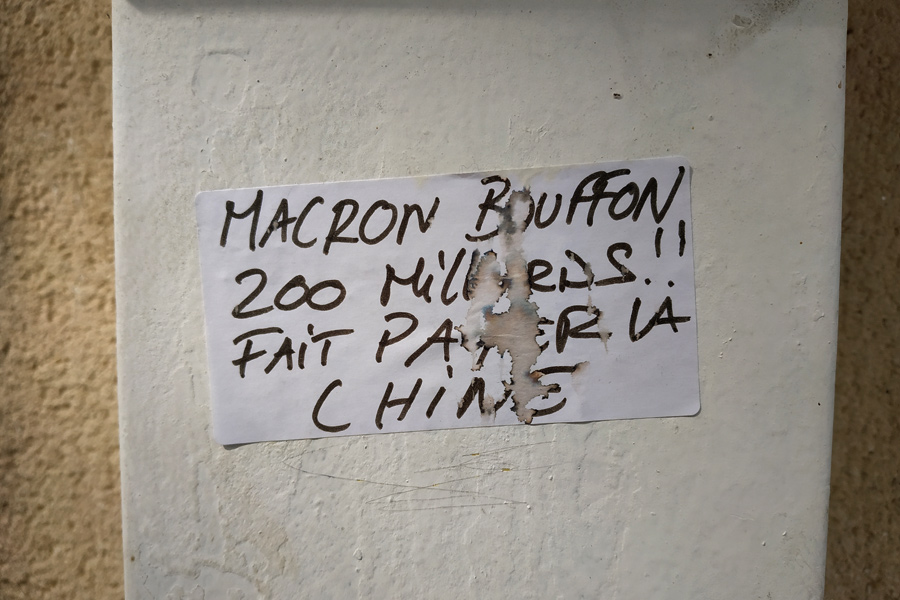 MACRON BOUFFON
200 MilliARDS!!
FAiT PAYER LA
CHiNE